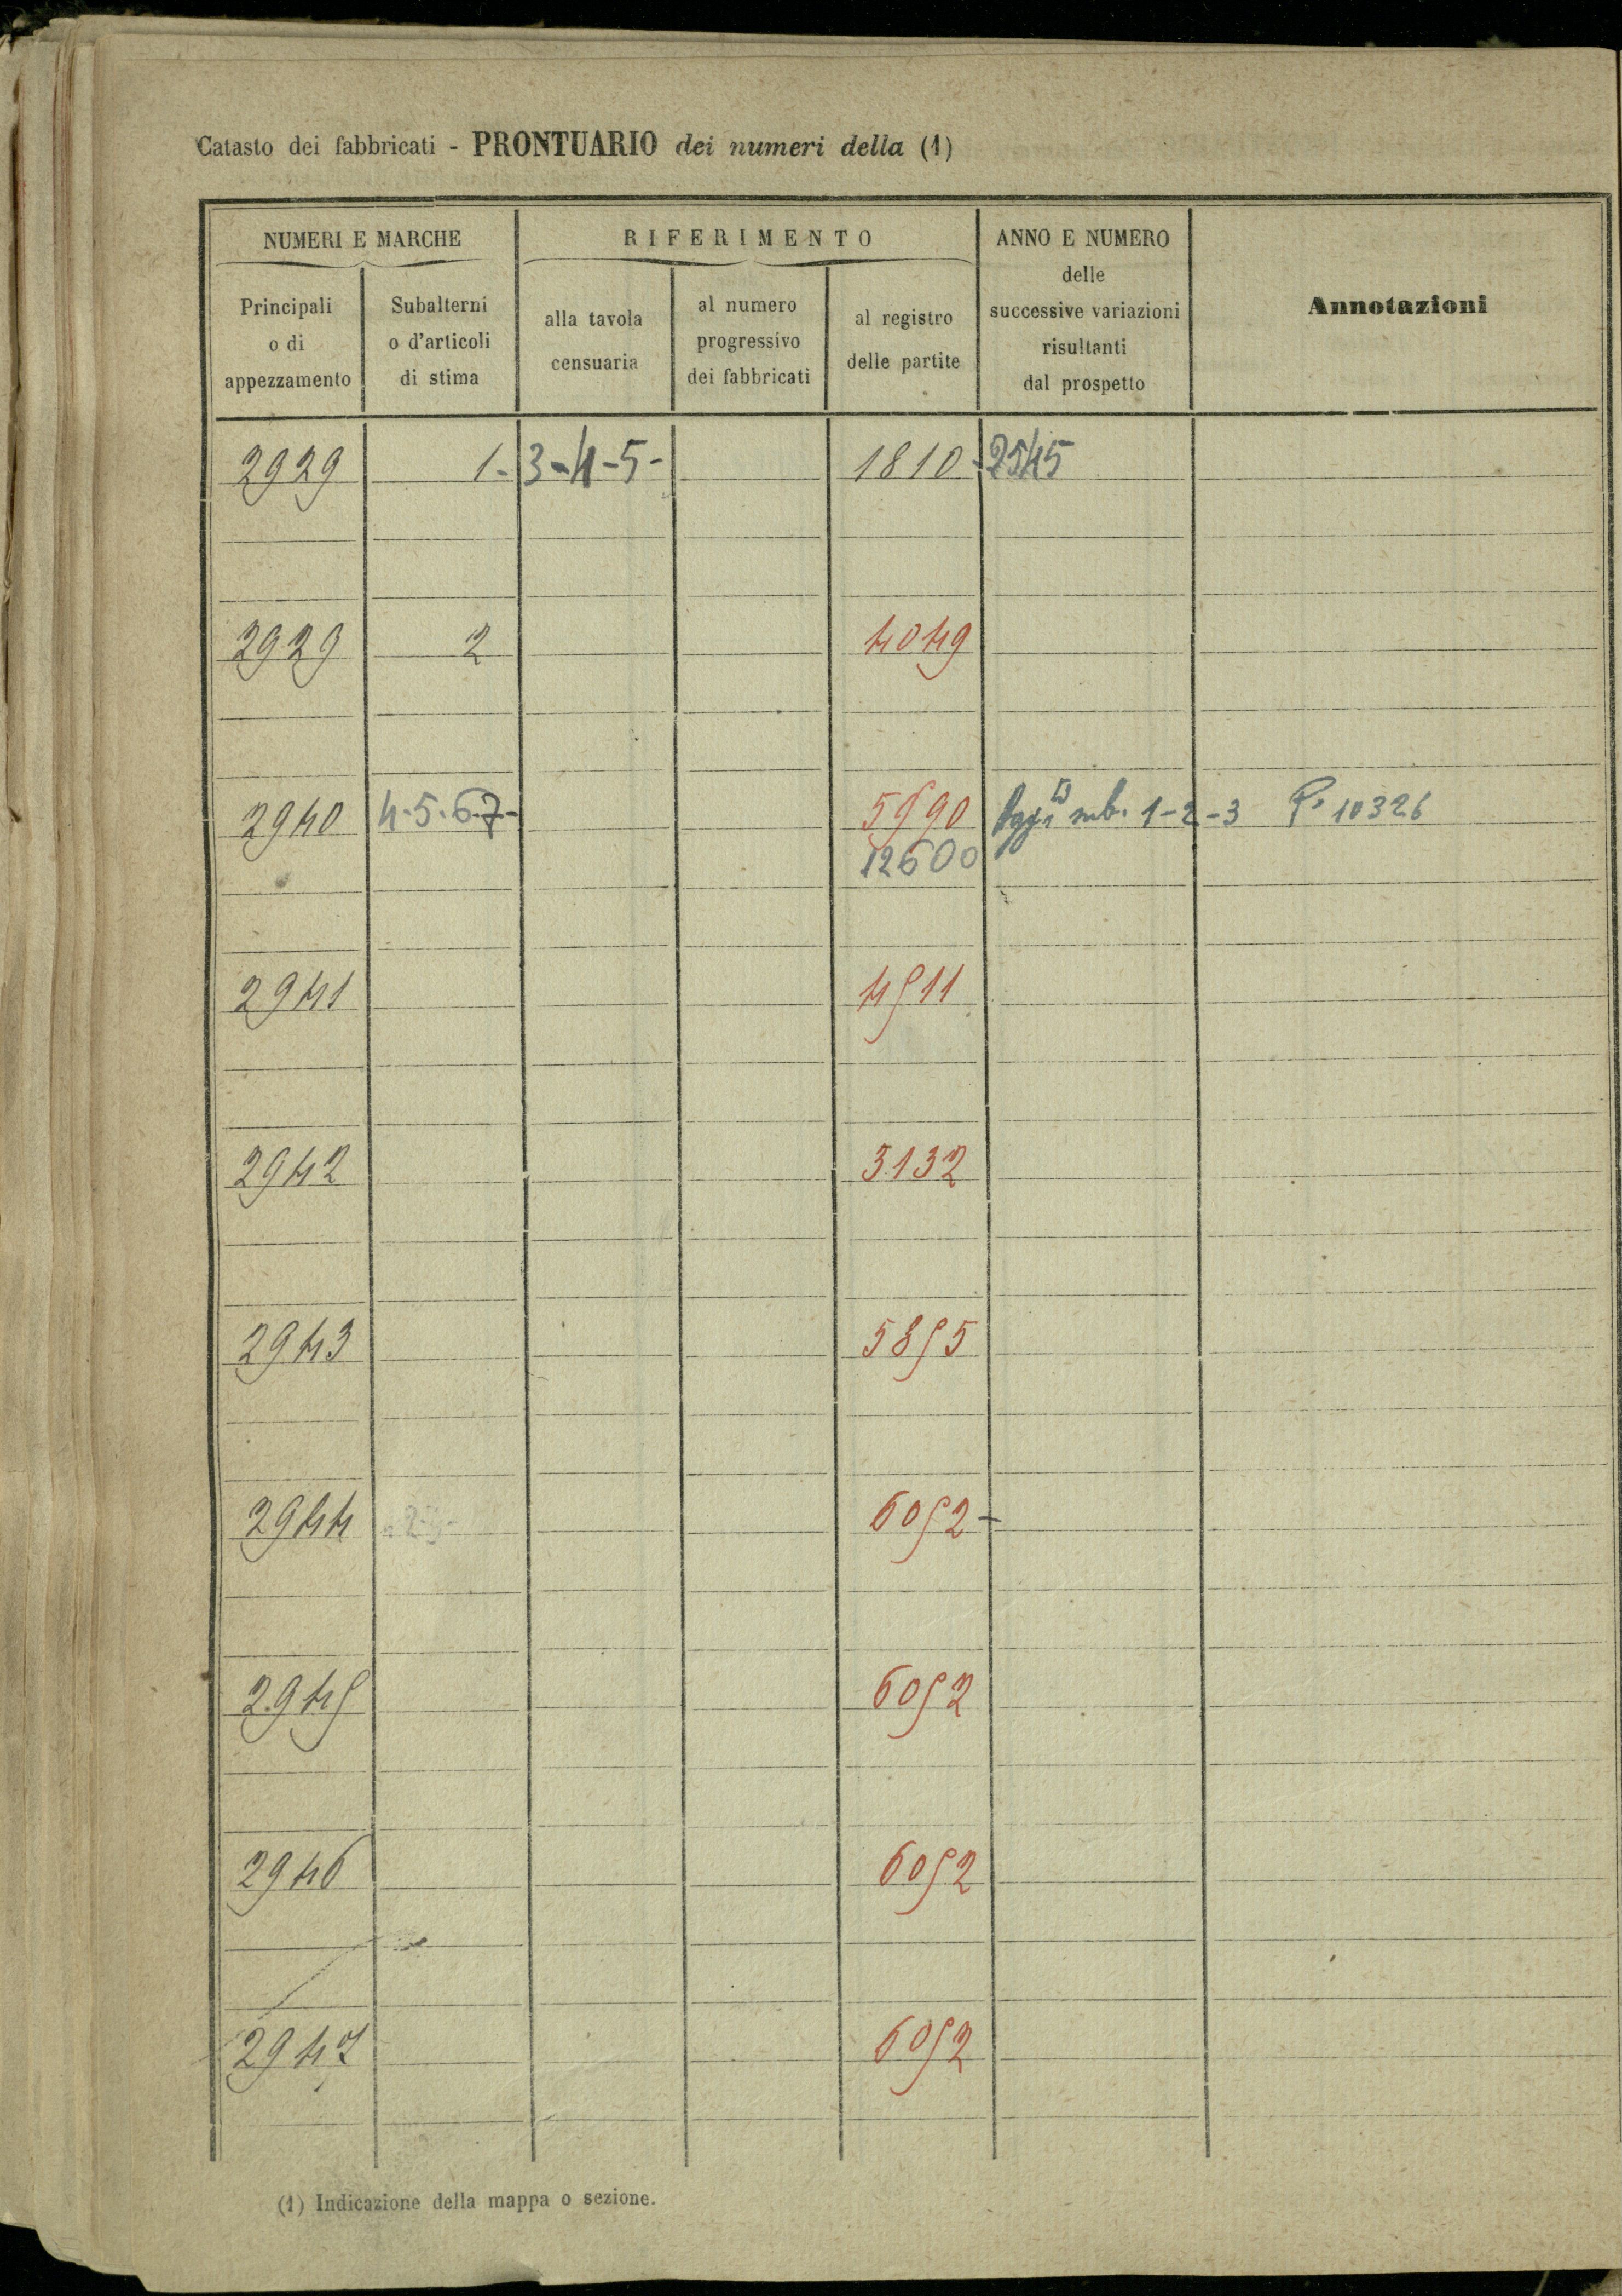 Catasto dei fabbricati - PRONTUARIO dei numeri della (1)
NUMERI E MARCHE
Principali
o di
appezzamento
Subalterni
o d'articoli
di stima
RIFERIMENTO
alla tavola
censuaria
al numero
progressivo
dei fabbricati
al registro
delle partite
ANNO E NUMERO
delle
successive variazioni
risultanti
dal prospetto
Annotazioni
2929 1-3-4-5- 1810-2545
2929 2 4049
2940 4-5.6-7- 5990 sub. 1-2-3 P. 10326
12600
2941 4511
2942 3132
2943 5855
2944 6052-
2945 6052
2946 6052
2947 6052
(1) Indicazione della mappa o sezione.